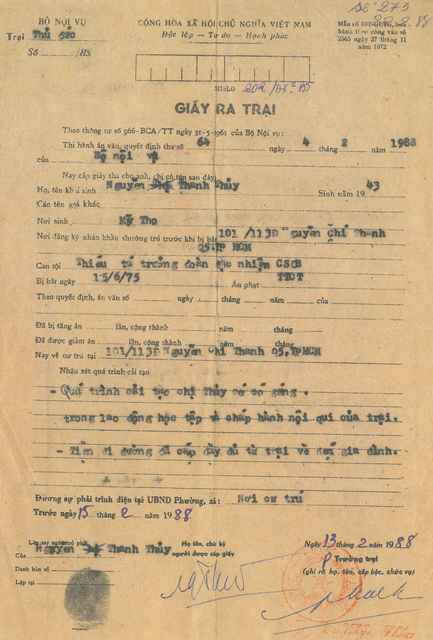 BỘ NỘI VỤ
Trại Thủ Đức
Số /HS
CỘNG HÒA XÃ HỘI CHỦ NGHĨA VIỆT NAM
Độc lập — Tự do — Hạnh phúc
Mẫu số
hành theo công văn số
2565 ngày 27 tháng 11
năm 1972
GIẤY RA TRẠI
Theo thông tư số 966-BCA/TT ngày 31-5-1961 của Bộ Nội vụ:
Thi hành án văn, quyết định tha số 64 ngày 4 tháng 2 năm 1988
của Bộ nội vụ
Nay cấp giấy tha cho anh, chị có tên sau đây:
Họ, tên khai sinh Nguyễn Thanh Thủy Sinh năm 1943
Các tên gọi khác
Nơi sinh Mỹ Tho
Nơi đăng ký nhân khẩu thường trú trước khi bị bắt 101/113D Nguyễn Chí Thanh
Q5.TP HCM
Can tội Thiếu tá trưởng đoàn đặc nhiệm CSQG
Bị bắt ngày 15/6/75 Án phạt TTCT
Theo quyết định, án văn số ngày tháng năm của
Đã bị tăng án lần, cộng thành năm tháng
Đã được giảm án lần, cộng thành năm tháng
Nay về cư trú tại 101/113D Nguyễn Chí Thanh Q5.TPHCM
Nhận xét quá trình cải tạo
- Quá trình cải tạo chị Thủy có cố gắng.
trong lao động học tập và chấp hành nội qui của trại.
- Tiền đi đường đã cấp đầy đủ từ trại về đến gia đình.
Đương sự phải trình diện tại UBND Phường, xã: Nơi cư trú
Trước ngày 15 tháng 2 năm 1988
Lăn tay ngón trỏ phải
Của Nguyễn Thanh Thủy
Danh bản số
Lập tại
Họ tên, chữ ký
người được cấp giấy
Ngày 13 tháng 2 năm 1988
Trưởng trại
(ghi rõ họ, tên, cấp bậc, chức vụ)